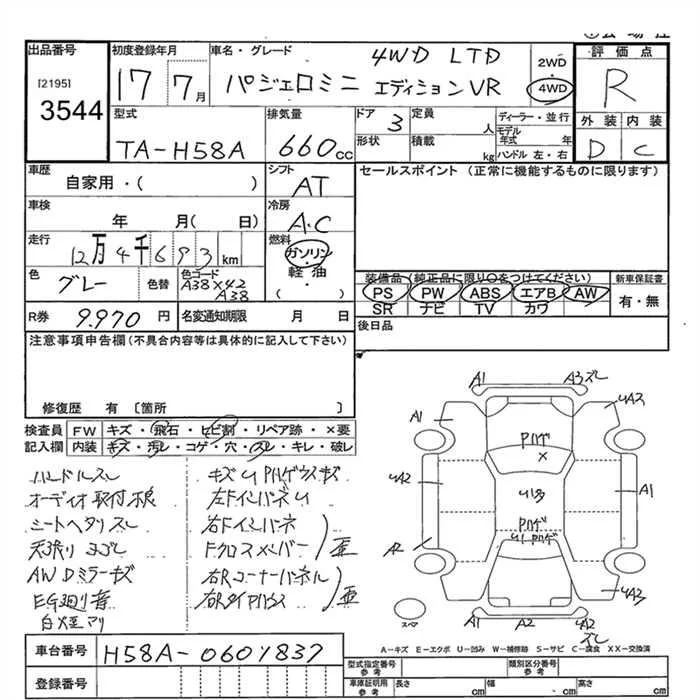 出品番号
[2195]
3544
初度登録年月
17 7月
車名・グレード
4WD LTD
パジェロミニ エディションVR
2WD
4WD
評価点
R
外装 内装
D C
型式
TA-H58A
排気量
660cc
ドア 3
形状
定員 人
積載 kg
ディーラー・並行
モデル年式 年
ハンドル 左・右
車歴
自家用・( )
シフト
AT
セールスポイント (正常に機能するものに限ります)
車検
年 月( 日)
冷房
A.C
走行
12万4千693km
燃料
ガソリン
軽油
( )
色
グレー
色替
色コード
A38X42
A38
装備品(純正品に限り○をつけてください)
PS PW ABS エアB AW
SR ナビ TV カワ
新車保証書
有・無
R券 9.970円
名変通知期限 月 日
後日品
注意事項申告欄(不具合内容等は具体的に記入して下さい)
修復歴 有 〔箇所 〕
検査員記入欄
FW キズ・飛石・ヒビ割・リペア跡・×要
内装 キズ・汚レ・コゲ・穴・スレ・キレ・破レ
ハンドルスレ
オーディオ取付不良
シートヘタリスレ
天張り ヨゴレ
AWDミラーキズ
EG廻り音
左ドインパネU
右ドインパネ
Fクロスメンバー
右Rコーナーパネル
右Rタイヤハウス
歪
歪
A1 A3スレ
A1 UA3
Pハゲ
X
UA2 U多 A1
Pハゲ
A2 U Pハゲ
UA3
A1 A2 U2
スレ
スペア
A-キズ E-エクボ U-凹み W-補修跡 S-サビ C-腐食 XX-交換済
車台番号 H58A-0601837
登録番号
型式指定番号
参考
類別区分番号
参考
車庫証明用
参考
長さ cm 幅 cm 高さ cm